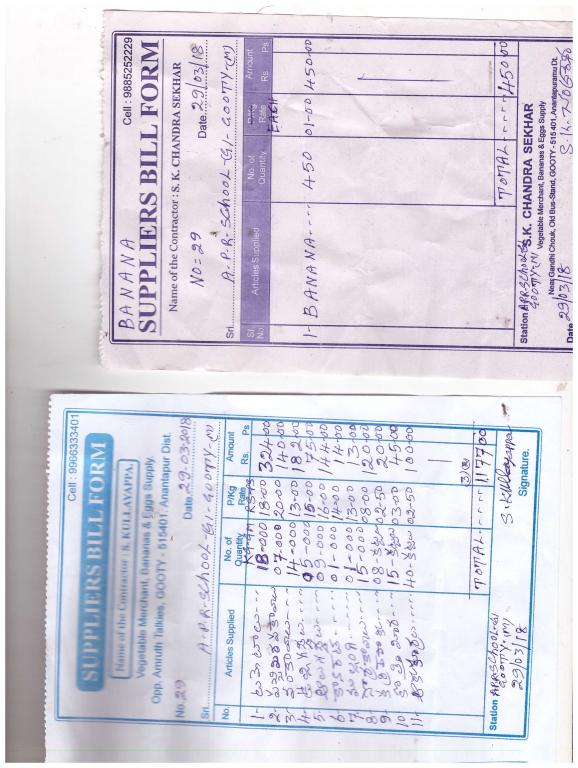 BANANA
Cell : 9885252229
SUPPLIERS BILL FORM
Name of the Contractor : S. K. CHANDRA SEKHAR
NO=29 Date 29/03/18
Sri. A.P.R-SCHOOL-G1-GOOTY-(M)
Sl. No Articles Supplied No. of Quantity Rate Amount
EACH Rs Ps
1- BANANA---- 450 01-00 450-00
TOTAL----- 450 00
S.K. CHANDRA SEKHAR
Vegetable Merchant, Bananas & Eggs Supply
Near Gandhi Chouk, Old Bus-Stand, GOOTY - 515 401, Anantapuramu Dt.
Station APR.SCHOOL-G1
GOOTY-(M)
Date 29/03/18
Cell : 9966333401
SUPPLIERS BILL FORM
Name of the Contractor : S. KULLAYAPPA.
Vegetable Merchant, Bananas & Eggs Supply.
Opp. Amruth Talkies, GOOTY - 515401. Anantapur Dist.
No. 29 Date 29.03.2018
Sri. A.P.R-SCHOOL-G1-GOOTY-(M)
No. Articles Supplied No. of Quantity P/Kg Rate Amount
Rs. Ps
1- 18-000 18-00 324-00
2- 07-000 20-00 140-00
3- 14-000 13-00 182-00
4- 05-000 15-00 75-00
5- 09-000 16-00 144-00
6- 01-000 14-00 14-00
7- 01-000 13-00 13-00
8- 15-000 08-00 120-00
9- 08- 02-50 20-00
10- 15- 03-00 45-00
11- 40- 02-50 100-00
TOTAL----- 1177 00
Station APR.SCHOOL-G1
GOOTY-(M)
29/03/18
S. Kullayappa
Signature.